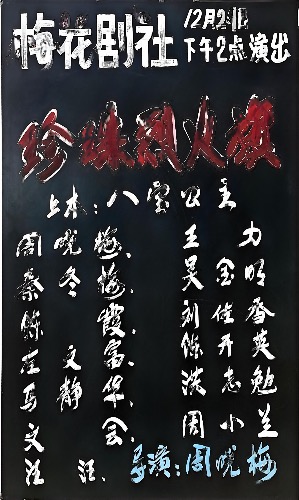 梅花剧社
12月2日
下午2点演出
珍珠烈火旗
上本：八宝公主
周晓梅、 王 力
秦冬梅、 吴金明
陈 霞、 刘佳香
文富、 陈开英
马静华、 淡志勉
文 会、 周小兰
汪 汪、
导演：周晓梅